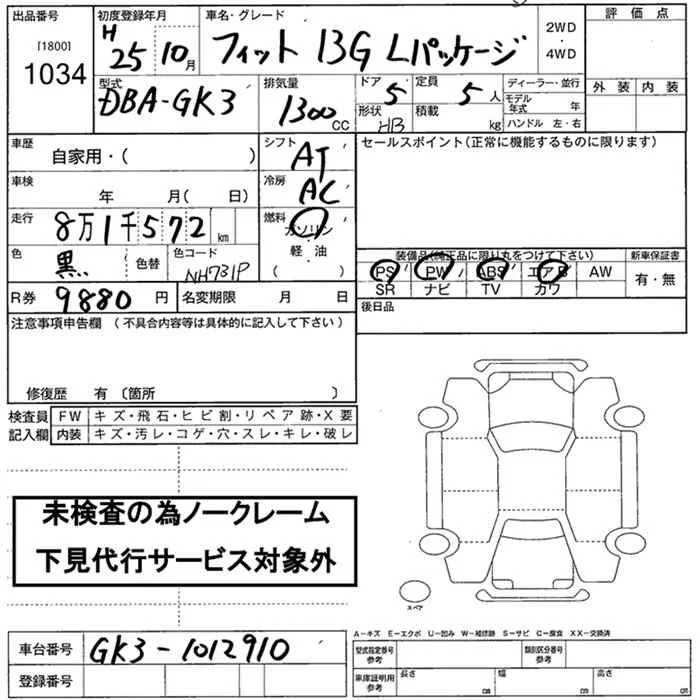 出品番号 初度登録年月 車名・グレード 評価点
[1800] 1034 H 25 10月 フィット 13G Lパッケージ 2WD ・ 4WD
外装 内装
型式 DBA-GK3 排気量 1300 CC ドア 5 定員 5 人 ディーラー・並行
形状 HB 積載 kg モデル年式 年
ハンドル 左・右
車歴 自家用・( ) シフト AT セールスポイント(正常に機能するものに限ります)
車検 年 月( 日) 冷房 AC
走行 8万1千572 km 燃料 ガソリン・軽油 ・ ( )
色 黒 色替 色コード NH731P
装備品(純正品に限り丸をつけて下さい) 新車保証書
PS PW ABS エアB AW 有・無
SR ナビ TV カワ
R券 9880 円 名変期限 月 日 後日品
注意事項申告欄 (不具合内容等は具体的に記入して下さい)
修復歴 有 〔箇所 〕
検査員 FW キズ・飛石・ヒビ割・リペア跡・X要
記入欄 内装 キズ・汚レ・コゲ・穴・スレ・キレ・破レ
未検査の為ノークレーム
下見代行サービス対象外
スペア
A－キズ E－エクボ U－凹み W－補修跡 S－サビ C－腐食 XX－交換済
車台番号 GK3-1012910 型式指定番号 参考 類別区分番号 参考
登録番号 車庫証明用 参考 長さ cm 幅 cm 高さ cm